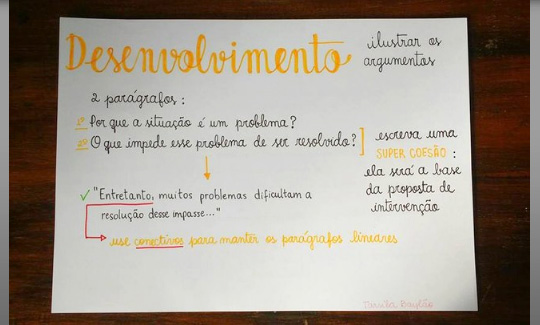 Desenvolvimento
ilustrar os
argumentos
2 parágrafos:
1º Por que a situação é um problema?
2º O que impede esse problema de ser resolvido?
escreva uma
SUPER COESÃO:
ela será a base
da proposta de
intervenção
✓ "Entretanto, muitos problemas dificultam a
resolução desse impasse..."
use conectivos para manter os parágrafos lineares